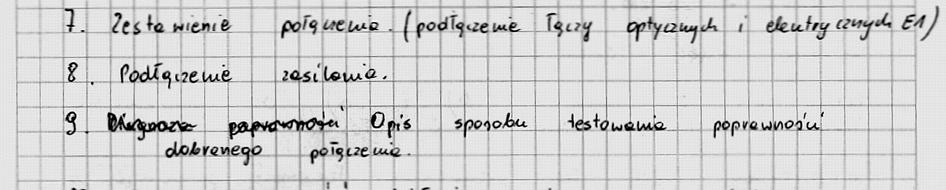 7. Zestawienie połączenia. (podłączenie łączy optycznych i elektrycznych E1)
8. Podłączenie zasilania.
9. Opis sposobu testowania poprawności
dobranego połączenia.